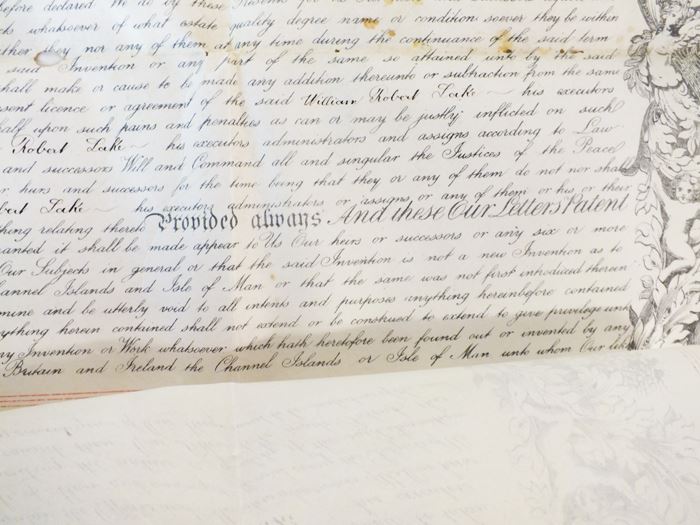 before declared We do by these Presents for Us Our heirs and
whatsoever of what estate quality degree name or condition soever they be within
they nor any of them at any time during the continuance of the said term
said Invention or any part of the same so attained unto by the said
shall make or cause to be made any addition thereunto or subtraction from the same
licence or agreement of the said William Robert Lake his executors
half upon such pains and penalties as can or may be justly inflicted on such
Robert Lake his executors administrators and assigns according to Law
and successors Will and Command all and singular the Justices of the Peace
or heirs and successors for the time being that they or any of them do not nor shall
Lake his executors administrators or assigns or any of them or his or their
thing relating thereto Provided always And these Our Letters Patent
it shall be made appear to Us Our heirs or successors or any six or more
Our Subjects in general or that the said Invention is not a new Invention as to
Channel Islands and Isle of Man or that the same was not first introduced therein
mine and be utterly void to all intents and purposes anything hereinbefore contained
anything herein contained shall not extend or be construed to extend to give privilege unto
any Invention or Work whatsoever which hath heretofore been found out or invented by any
Britain and Ireland the Channel Islands or Isle of Man unto whom Our like